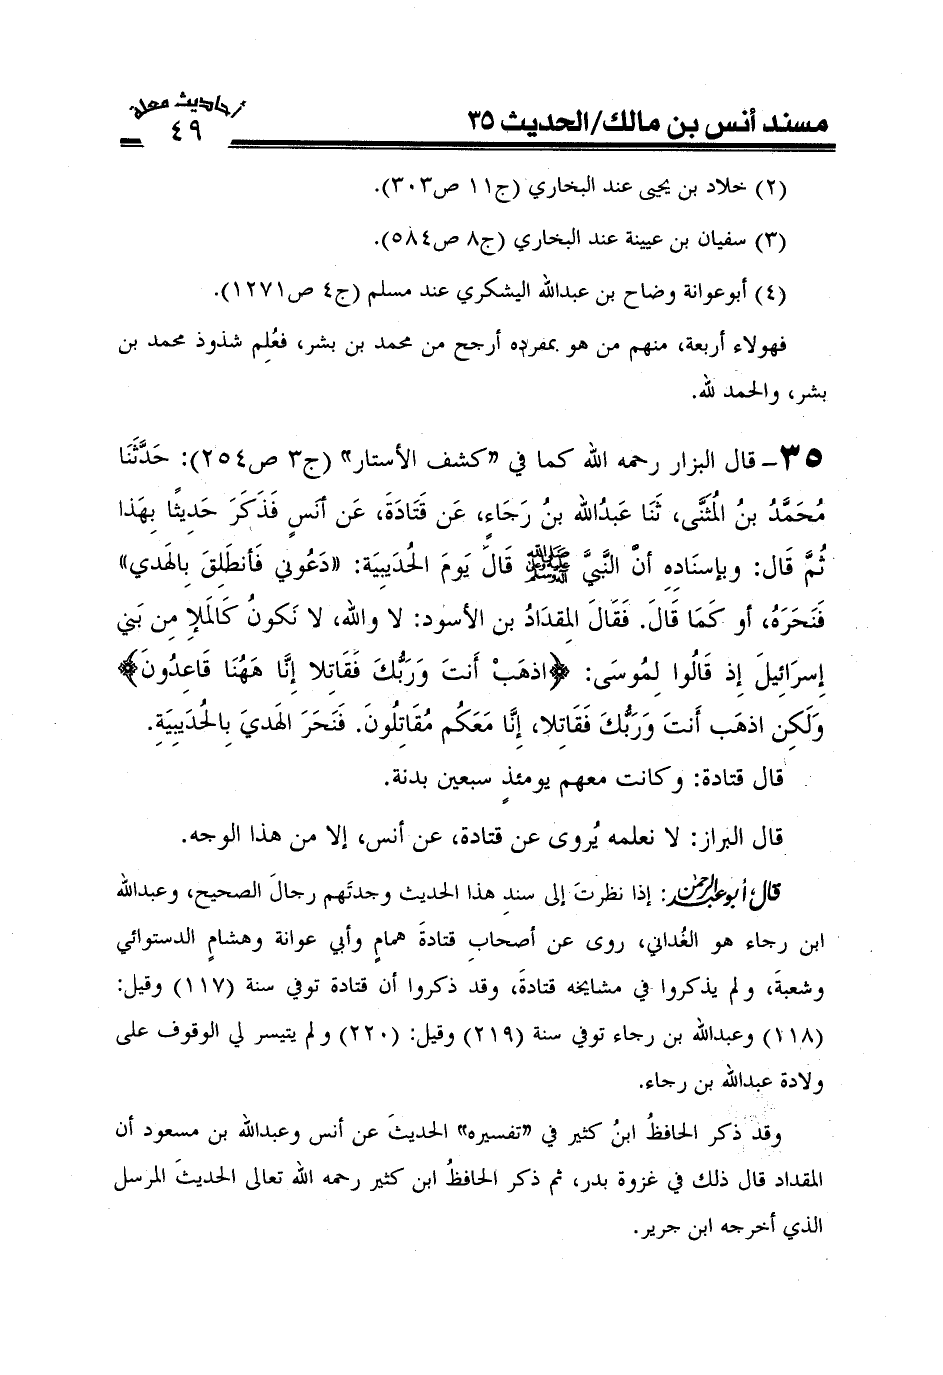 أحاديث معلة
مسند أنس بن مالك/الحديث ٣٥
٤٩
(٢) خلاد بن يحيى عند البخاري (ج١١ ص٣٠٣).
(٣) سفيان بن عيينة عند البخاري (ج٨ ص٥٨٤).
(٤) أبوعوانة وضاح بن عبدالله اليشكري عند مسلم (ج٤ ص١٢٧١).
فهولاء أربعة، منهم من هو بمفرده أرجح من محمد بن بشر، فعُلِم شذوذ محمد بن
بشر، والحمد لله.
٣٥- قال البزار رحمه الله كما في «كشف الأستار» (ج٣ ص٢٥٤): حَدَّثَنَا
مُحَمَّدُ بنُ المُثَنَّى، ثَنَا عَبدُالله بنُ رَجَاءٍ، عَن قَتَادَةَ، عَن أَنَسٍ فَذَكَرَ حَدِيثًا بِهَذا
ثُمَّ قَال: وبِإسنَادِهِ أنَّ النَّبِيَّ ﷺ قَالَ يَومَ الحُدَيبِيَة: «دَعُوني فَأنطَلِقَ بِالهَدي»
فَنَحَرَهُ، أو كَمَا قَالَ. فَقَالَ المِقدَادُ بن الأسود: لا والله، لا نَكونُ كَالمَلإِ مِن بَني
إسرَائيلَ إذ قَالُوا لمُوسَى: ﴿اذهَبْ أنتَ وَرَبُّكَ فَقَاتِلا إنَّا هَهُنَا قَاعِدُونَ﴾
وَلَكِن اذهَب أَنتَ وَرَبُّكَ فَقَاتِلا، إِنَّا مَعَكُم مُقَاتِلُونَ. فَنَحَرَ الهَديَ بِالحُدَيبِيَةِ.
قال قتادة: وكانت معهم يومئذٍ سبعين بدنة.
قال البزاز: لا نعلمه يُروى عن قتادة، عن أنس، إلا من هذا الوجه.
قال أبو عبدالرحمن: إذا نظرتَ إلى سندِ هذا الحديث وجدتَهم رجالَ الصحيح، وعبدالله
ابن رجاء هو الغُداني، روى عن أصحابِ قتادةَ همامٍ وأبي عوانة وهشامٍ الدستوائي
وشعبةَ، ولم يذكروا في مشايخه قتادةَ، وقد ذكروا أن قتادة توفي سنة (١١٧) وقيل:
(١١٨) وعبدالله بن رجاء توفي سنة (٢١٩) وقيل: (٢٢٠) ولم يتيسر لي الوقوف على
ولادة عبدالله بن رجاء.
وقد ذكر الحافظُ ابنُ كثير في «تفسيره» الحديثَ عن أنس وعبدالله بن مسعود أن
المقداد قال ذلك في غزوة بدر، ثم ذكر الحافظُ ابن كثير رحمه الله تعالى الحديثَ المرسل
الذي أخرجه ابن جرير.